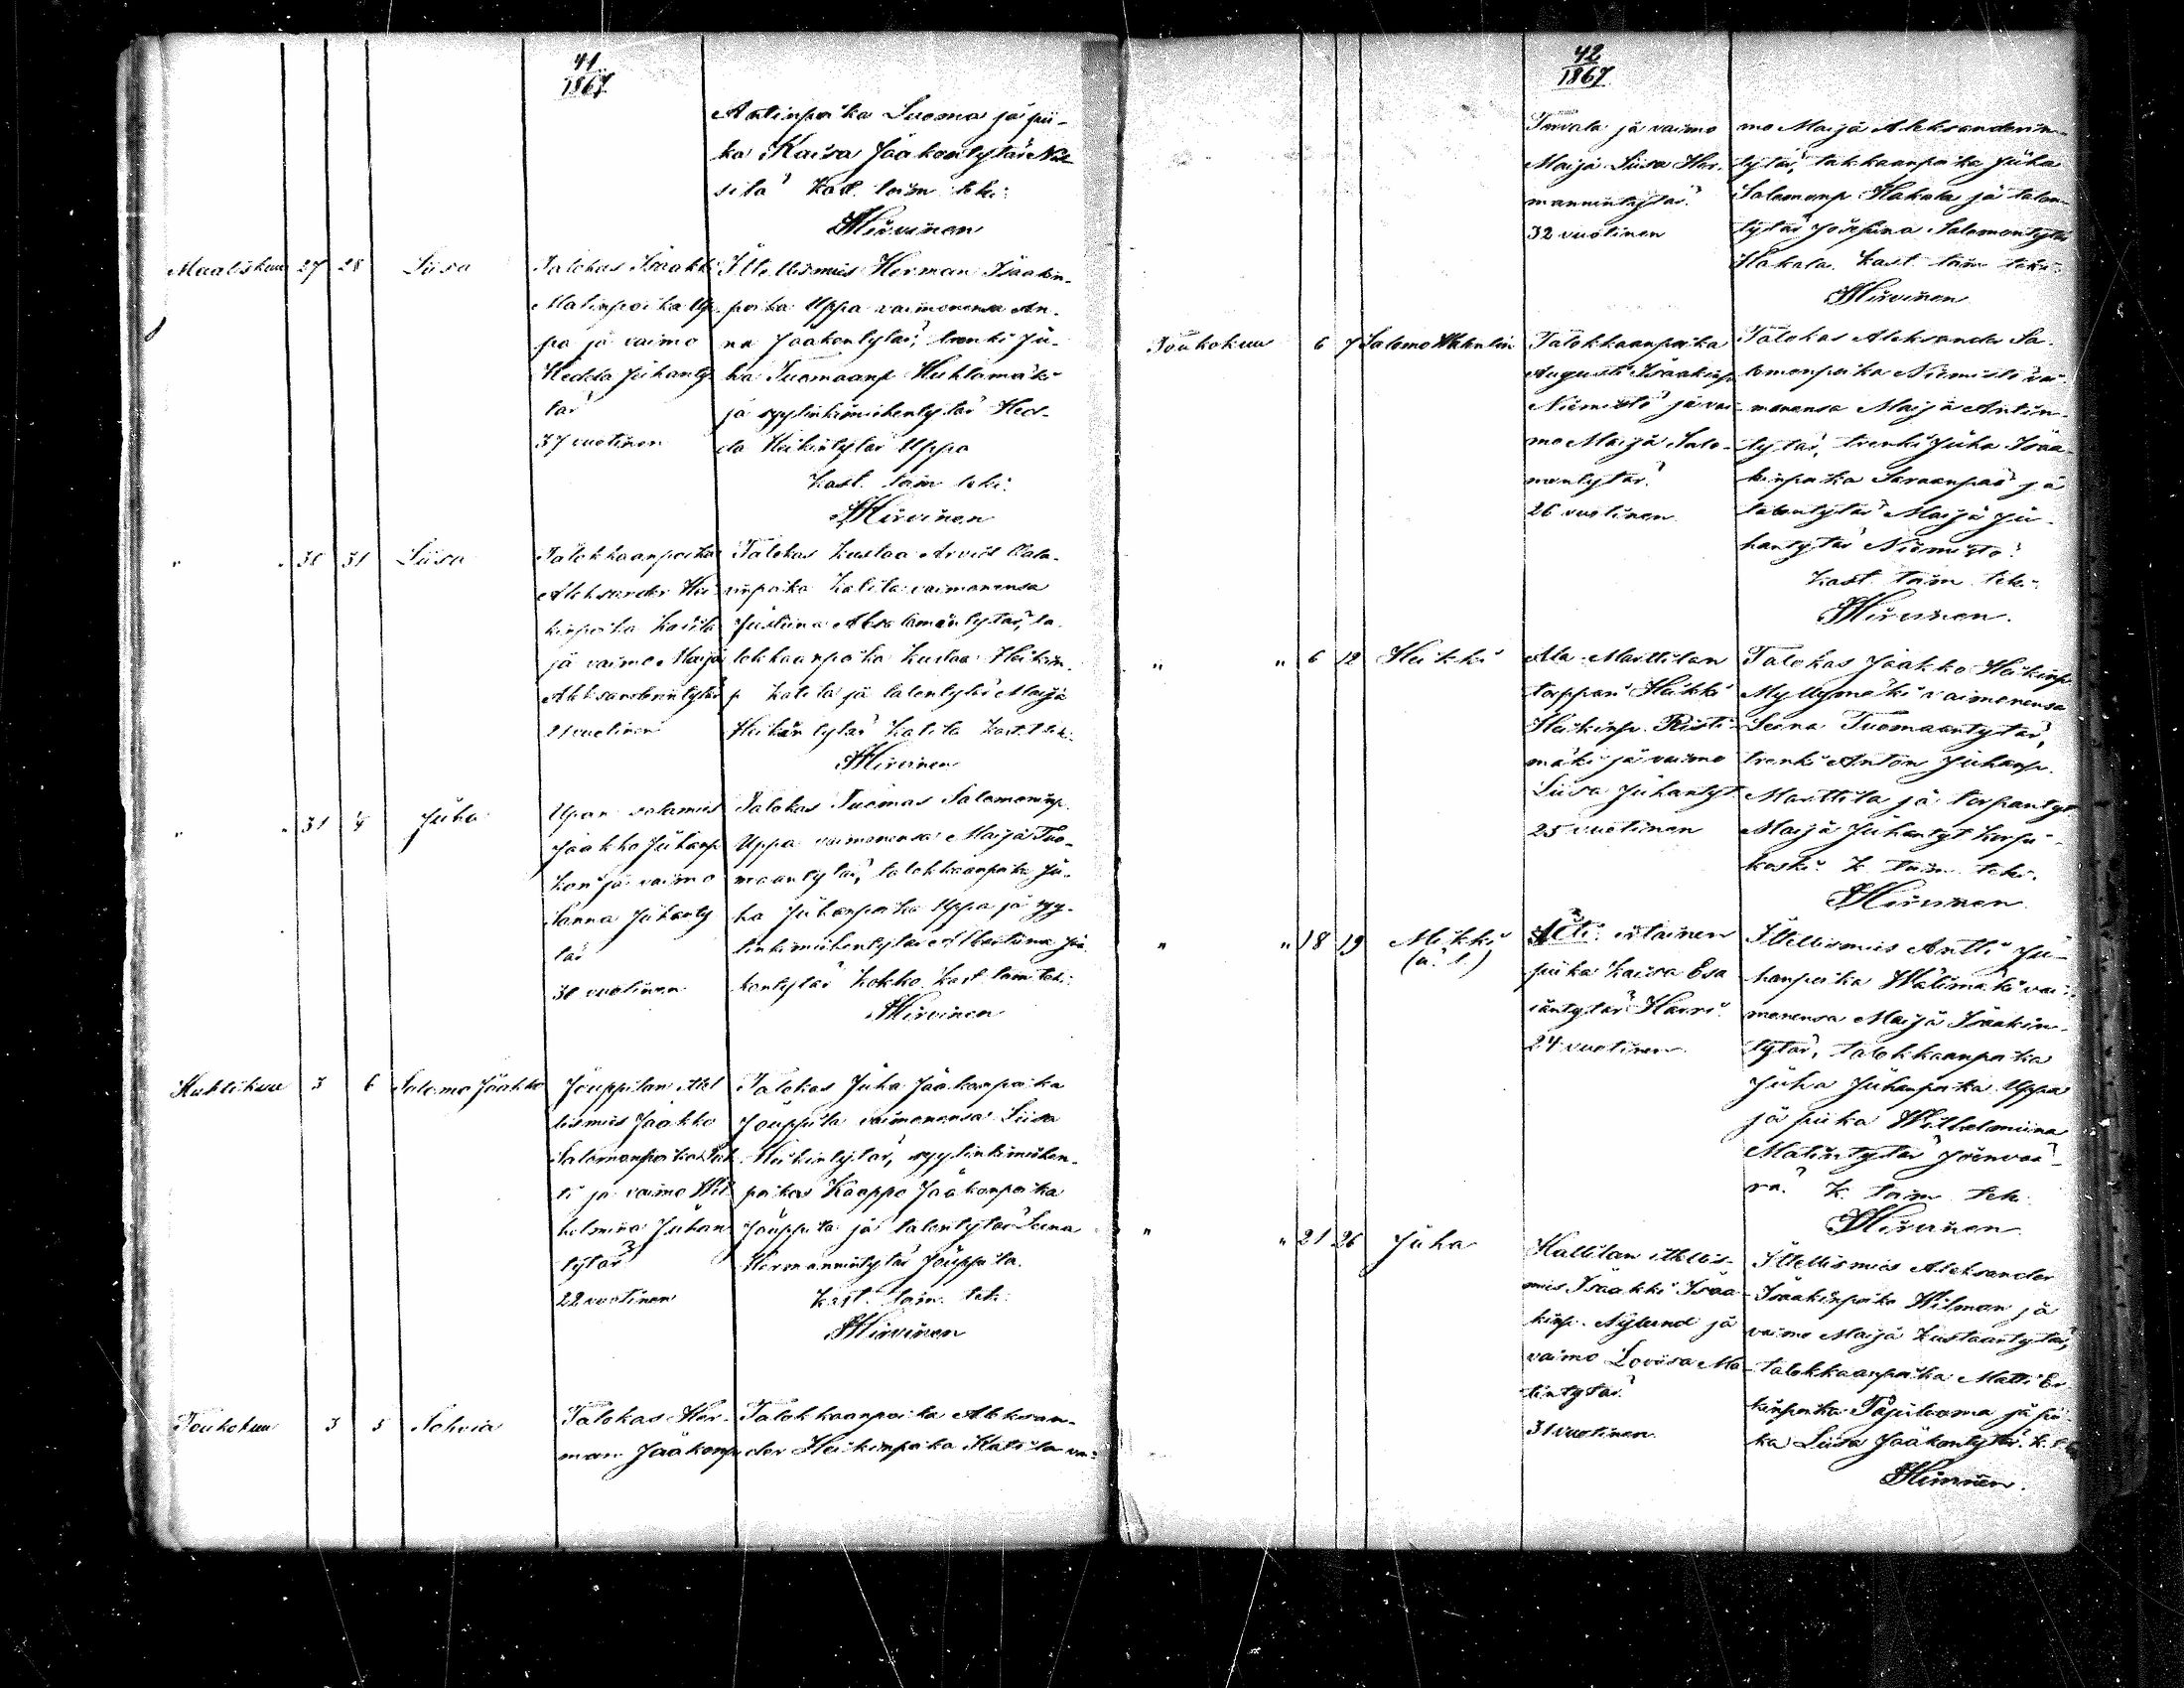 41
1867
Antinpoika Luoma ja pii-
ka Kaisa Jaakontytär
Kast. toim. teki:
Hirvinen
Maaliskuu 27 28 Liisa
Talokas Isaakki
Matinpoika Up-
pa ja vaimo
Hedda Juhanty-
tär
37 vuotinen
Ittellismies Herman Isaakin-
poika Uppa vaimonensa An-
na Jaakontytär, trenki Ju-
ha Tuomaanp Huhtamäki
ja syytinkimiehentytär Hed-
da Heikintytär Uppa
Kast. toim. teki:
Hirvinen
" " 30 31 Liisa
Talokkaanpoika
Aleksander Hei-
kinpoika Katila
ja vaimo Maija
Aleksanderintytär
21 vuotinen
Talokas Kustaa Arviit
poika Katila vaimonensa
Justiina Absalomintytär, ta-
lokkaanpoika Kustaa Heikin-
p Katila ja talontytär Maija
Heikintytär Katila Kast. t. tek:
Hirvinen
" " 31 4 Juha
Upan
Jaakko Juhanp
ja vaimo
Sanna Juhanty-
tär
30 vuotinen
Talokas Tuomas Salomoninp.
Uppa vaimonensa Maija Tuo-
maantytär, talokkaanpoika Ju-
ha Juhanpoika Uppa ja syy-
tinkimiehentytär Albertiina Jaa-
kontytär Kokko Kast. toim. teki:
Hirvinen
Huhtikuu 3 6 Salomo Jaakko
Jouppilan ittel-
lismies Jaakko
Salomonpoika
ja vaimo Wil-
helmina Juhan-
tytär
22 vuotinen
Talokas Juha Jaakonpoika
Jouppila vaimonensa Liisa
Heikintytär, syytinkimiehen-
poika Kaappo Jaakonpoika
Jouppila ja talontytär Leena
Hermannintytär Jouppila.
Kast. toim. teki:
Hirvinen
Toukokuu 3 5 Sohvia
Talokas Her-
man Jaakonp
Talokkaanpoika Aleksan-
der Heikinpoika Katila vai-
42
1867
Torvala ja vaimo
Maija Liisa Her-
mannintytär.
32 vuotinen
mo Maija Aleksanderin-
tytär, talokkaanpoika Juha
Salomonp Hakala ja talon-
tytär Josefiina Salomontytär
Hakala. Kast. toim. teki:
Hirvinen
Toukokuu 6 7 Salomo Wihelmi
Talokkaanpoika
Augusti Isaakinp
Niemistö ja vai-
mo Maija Salo-
montytär.
26 vuotinen
Talokas Aleksander Sa-
lomonpoika Niemistö vai-
monensa Maija Antin-
tytär, trenki Juha Isaa-
kinpoika Saraanpää ja
talontytär Maija Ju-
hantytär Niemistö.
Kast. toim. teki:
Hirvinen.
" " 6 12 Heikki
Ala-Marttilan
torppari Heikki
Heikinp. Risti-
mäki ja vaimo
Liisa Juhantyt.
25 vuotinen
Talokas Jaakko Heikinp.
Myllymäki vaimonensa
Leena Tuomaantytär,
trenki Anton Juhanp.
Marttila ja torpantyt
Maija Juhantyt Korpi-
koski. K. toim. teki.
Hirvinen
" " 18 19 Mikki
(ä. l.)
Äiti: irtainen
piika Kaisa Esa-
iantytär Harri.
24 vuotinen
Ittellismies Antti Ju-
hanpoika Wälimäki vai-
monensa Maija Isaakin-
tytär, talokkaanpoika
Juha Juhanpoika Uppa
ja piika Wilhelmiina
Matintytär Joenvaa-
ra. K. toim. teki:
Hirvinen.
" " 21 26 Juha
Kallilan ittellis-
mies Isaakki Isaa-
kinp. Nylund ja
vaimo Loviisa Ma-
tintytär.
31 vuotinen.
Ittellismies Aleksander
Isaakinpoika Wilman ja
vaimo Maija Kustaantytär,
talokkaanpoika Matti Er-
kinpoika ja pii-
ka Liisa Jaakontytär. K. t.
Hirvinen.